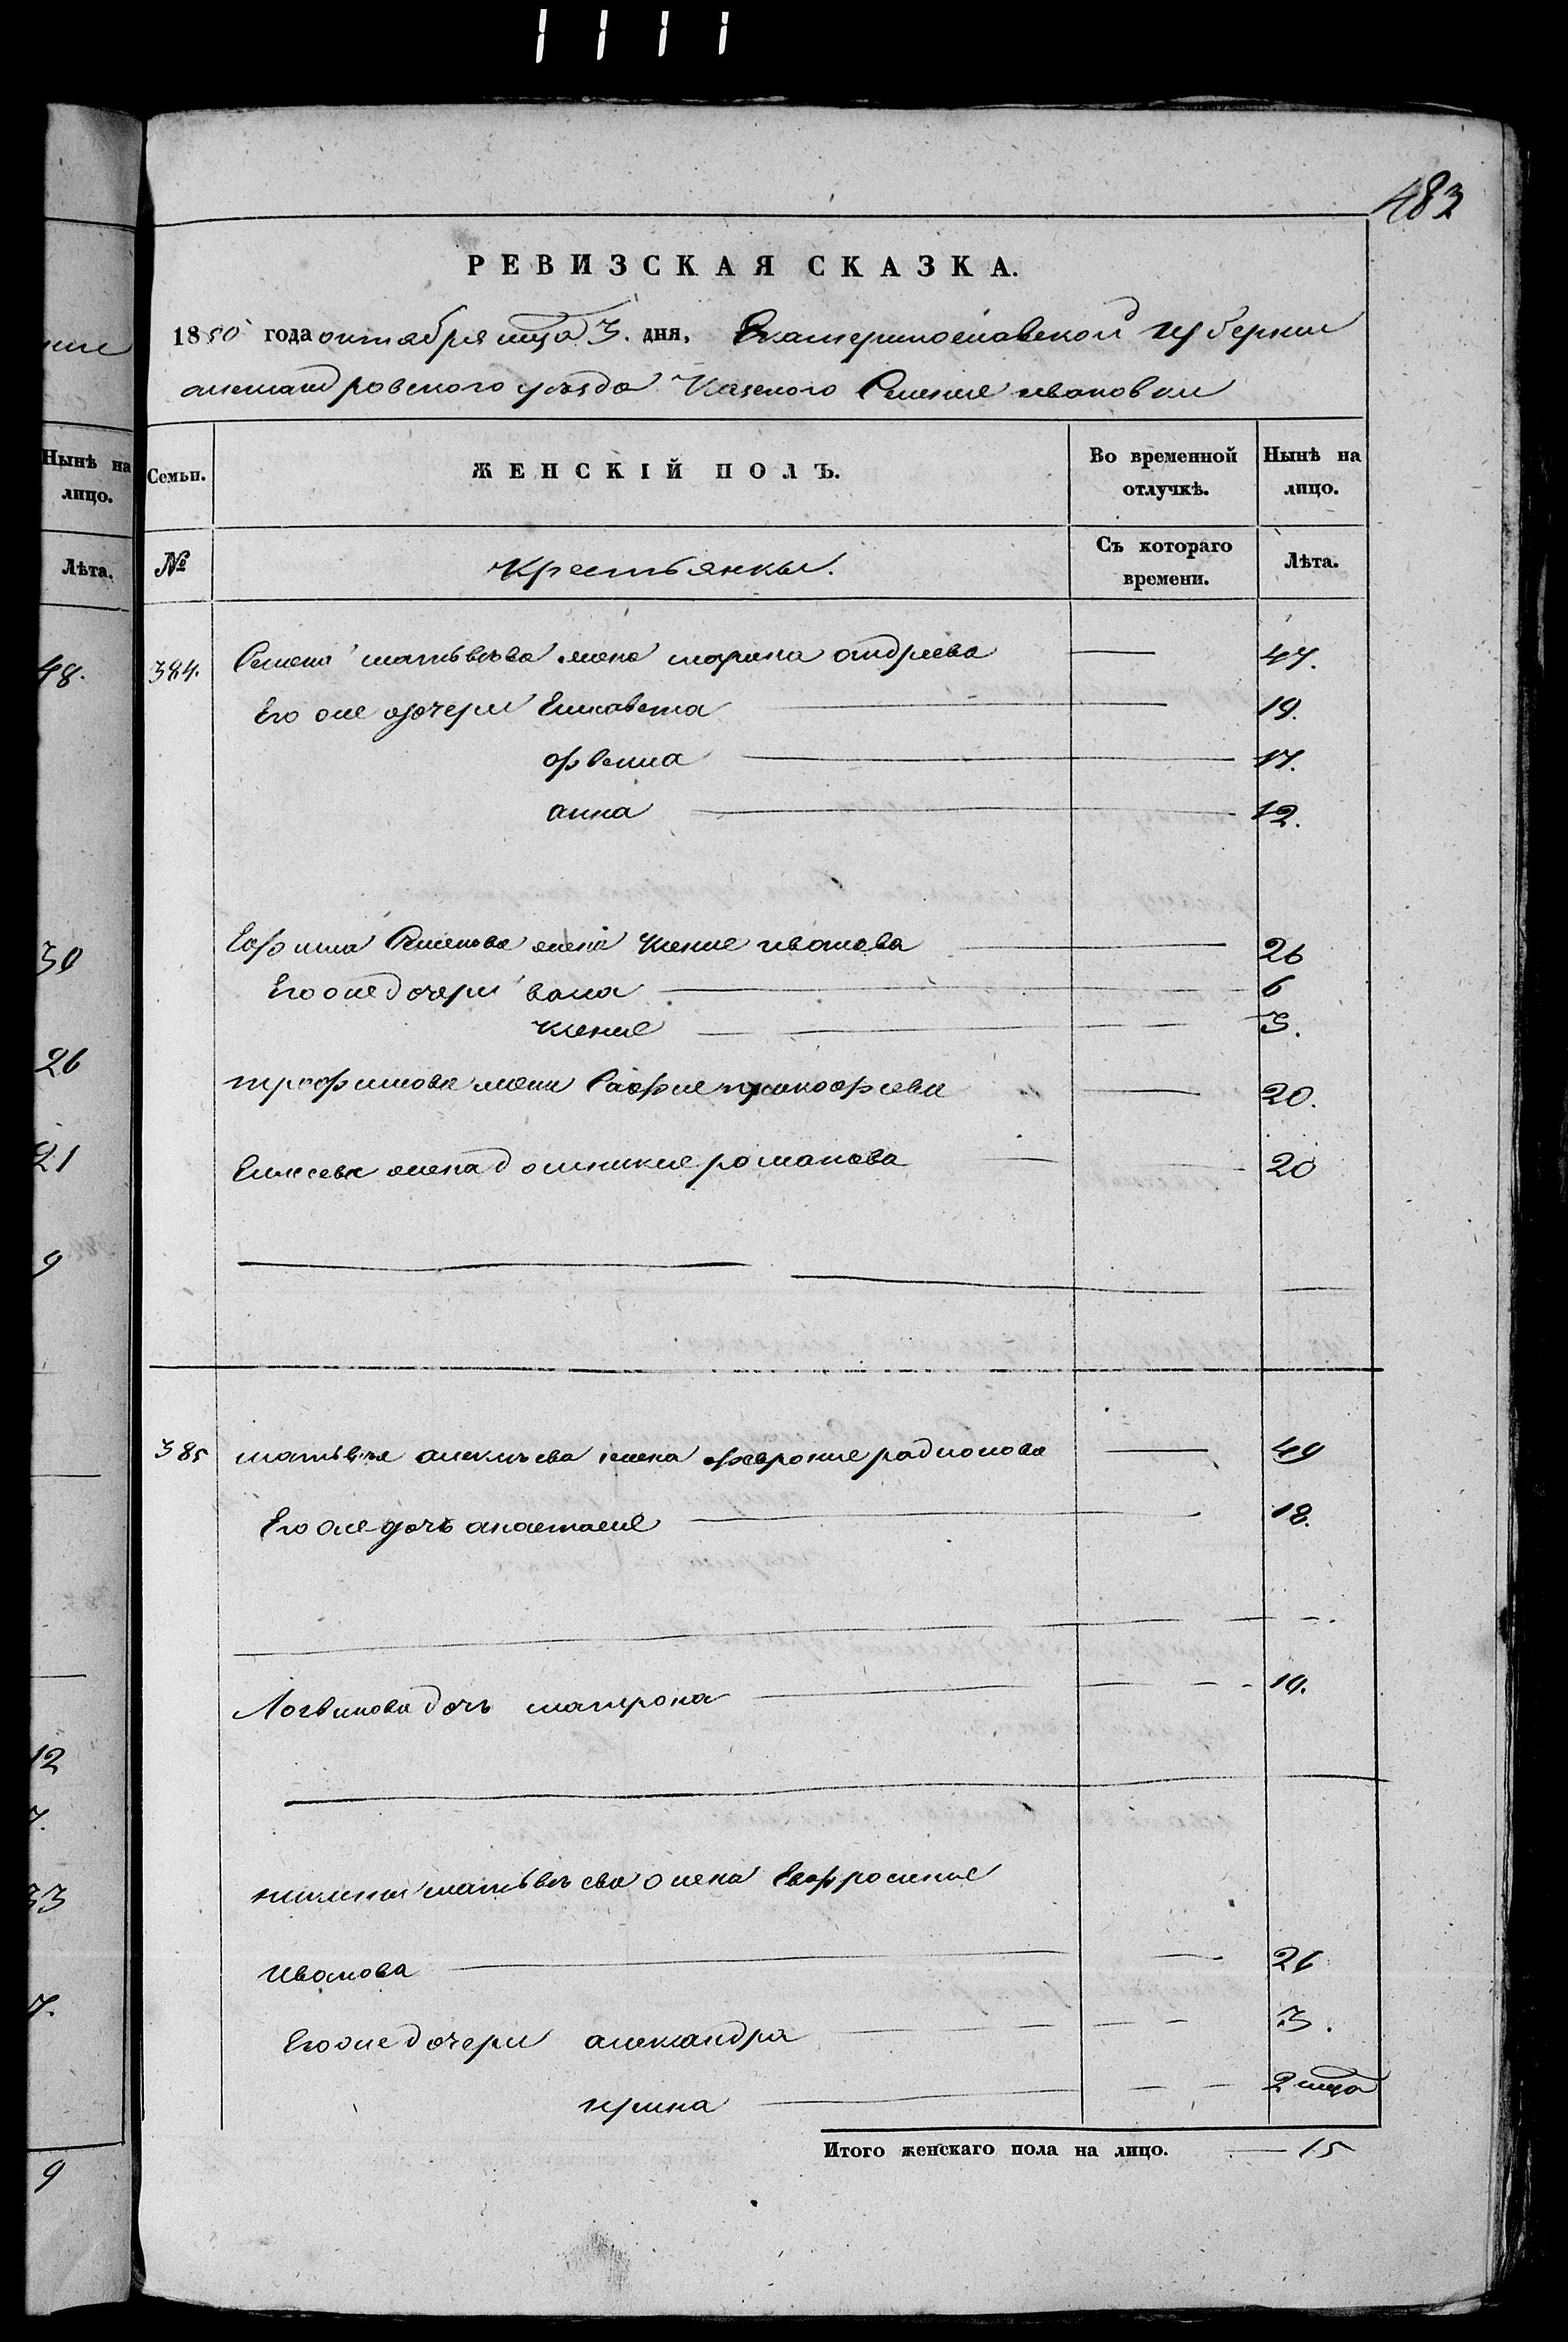 483
РЕВИЗСКАЯ СКАЗКА.
1850 года октября мца 3. дня, Екатеринославской губернии
александровского уезда Казеного Селения ивановки
Семьи. ЖЕНСКІЙ ПОЛЪ. Во временной отлучкѣ. Нынѣ на лицо.
№ Крестьянки. Съ котораго времени. Лѣта.
384. Семена матвѣева жена марина андреева 47.
Его же дочери Елисавета 19.
17.
анна 12.
Ефима Семенова жена Ксения иванова 26
Его же дочери 6
Ксения 3.
трофимова жена Сафия пракофиева 20.
Елисева жена домникия романова 20
385 матвѣя алексѣева жена феврония радионова 49
Его же дочь анастасия 18.
Логвинова дочь матрона 19.
матвѣева жена Ефросиния
иванова 26
Его же дочери александра 3.
ирина 2 мца
Итого женскаго пола на лицо. 15
Нынѣ на
лицо.
Лѣта.
48.
30
26
21
9
12
7.
33
7.
9